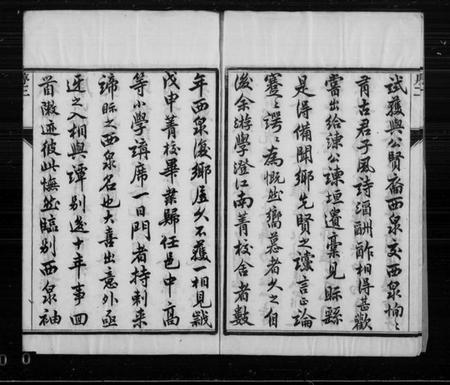 試獲與公賢裔西泉交西泉恂〻
有古君子風詩酒酬酢相得甚歡
嘗出給諫公諫垣遺稾見眎繇
是得備聞鄉先賢之讜言正論
蹇〻諤〻為慨然嚮慕者久之自
後余游學澄江南菁校舍者數
年西泉復鄉居久不獲一相見歲
戊申菁校畢業歸任邑中高
等小學講席一日閽者持刺来
諦眎之西泉名也大喜出意外亟
迓之入相與譚別後十年事回
首微迹彼此憮然臨別西泉袖
序二
序三